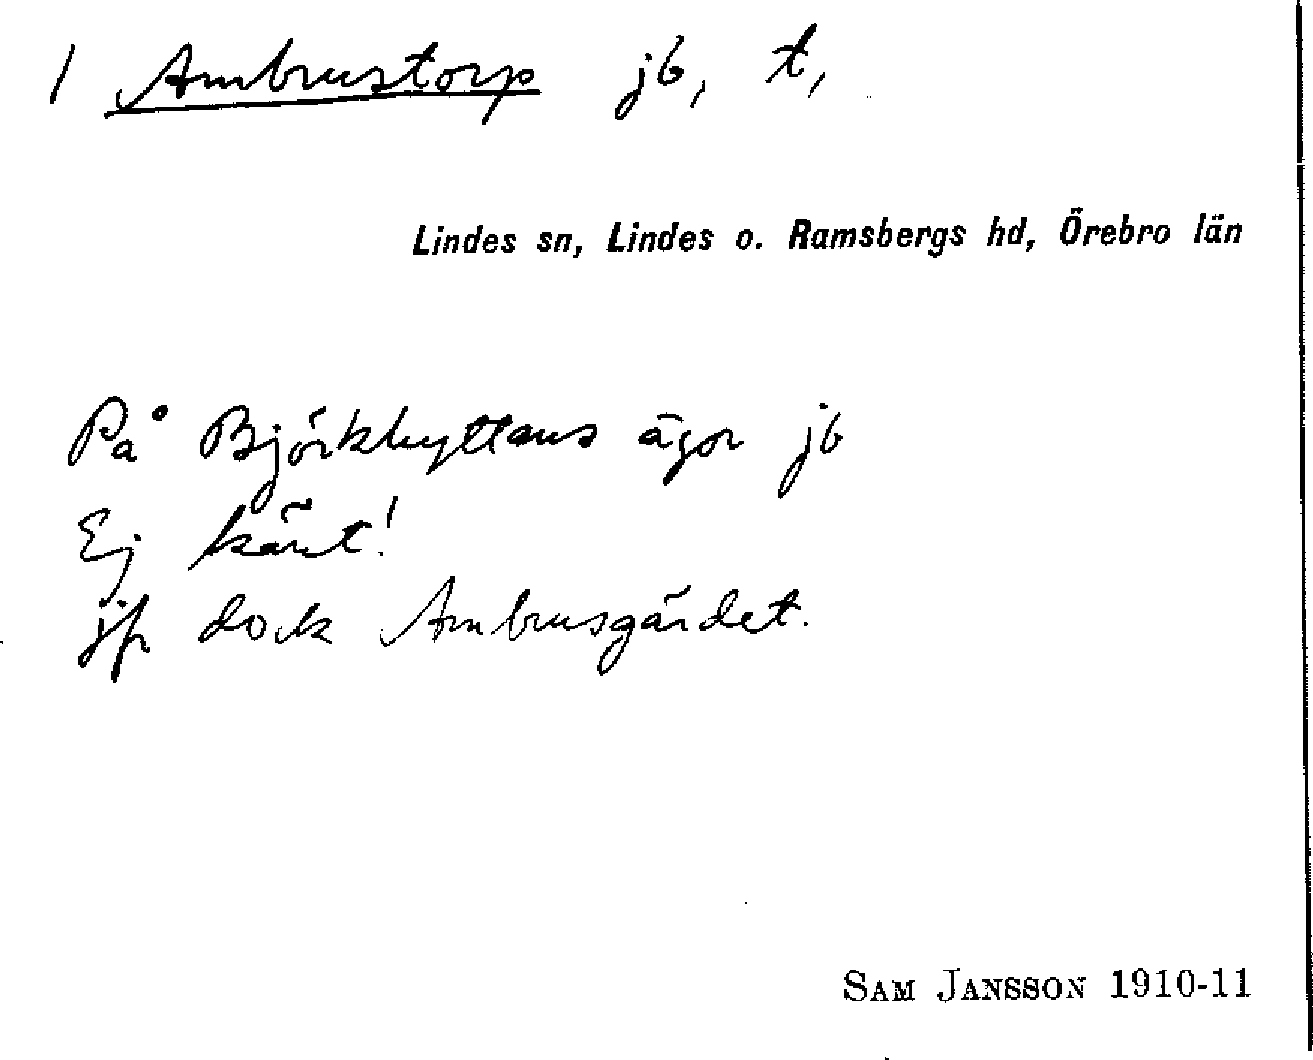 1 Ambrustorp jb, t,
Lindes sn, Lindes o. Ramsbergs hd, Örebro län
På Björkhyttans ägor jb
Ej känt!
jfr dock Ambrusgärdet.
SAM JANSSON 1910-11